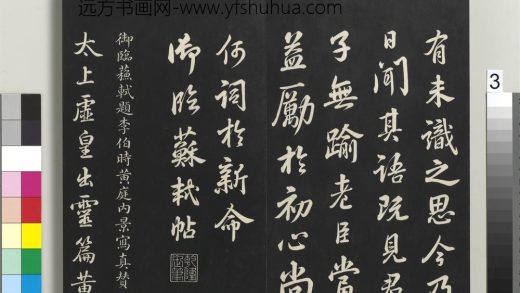 远方书画网-www.yfshuhua.com
有未識之思今乃
日聞其語既見君
子無踰老臣當
益勵於初心尚
何詞於新命
御臨蘇軾帖
御臨蘇軾題李伯時黃庭內景寫真贊
太上虛皇出靈篇黃
3